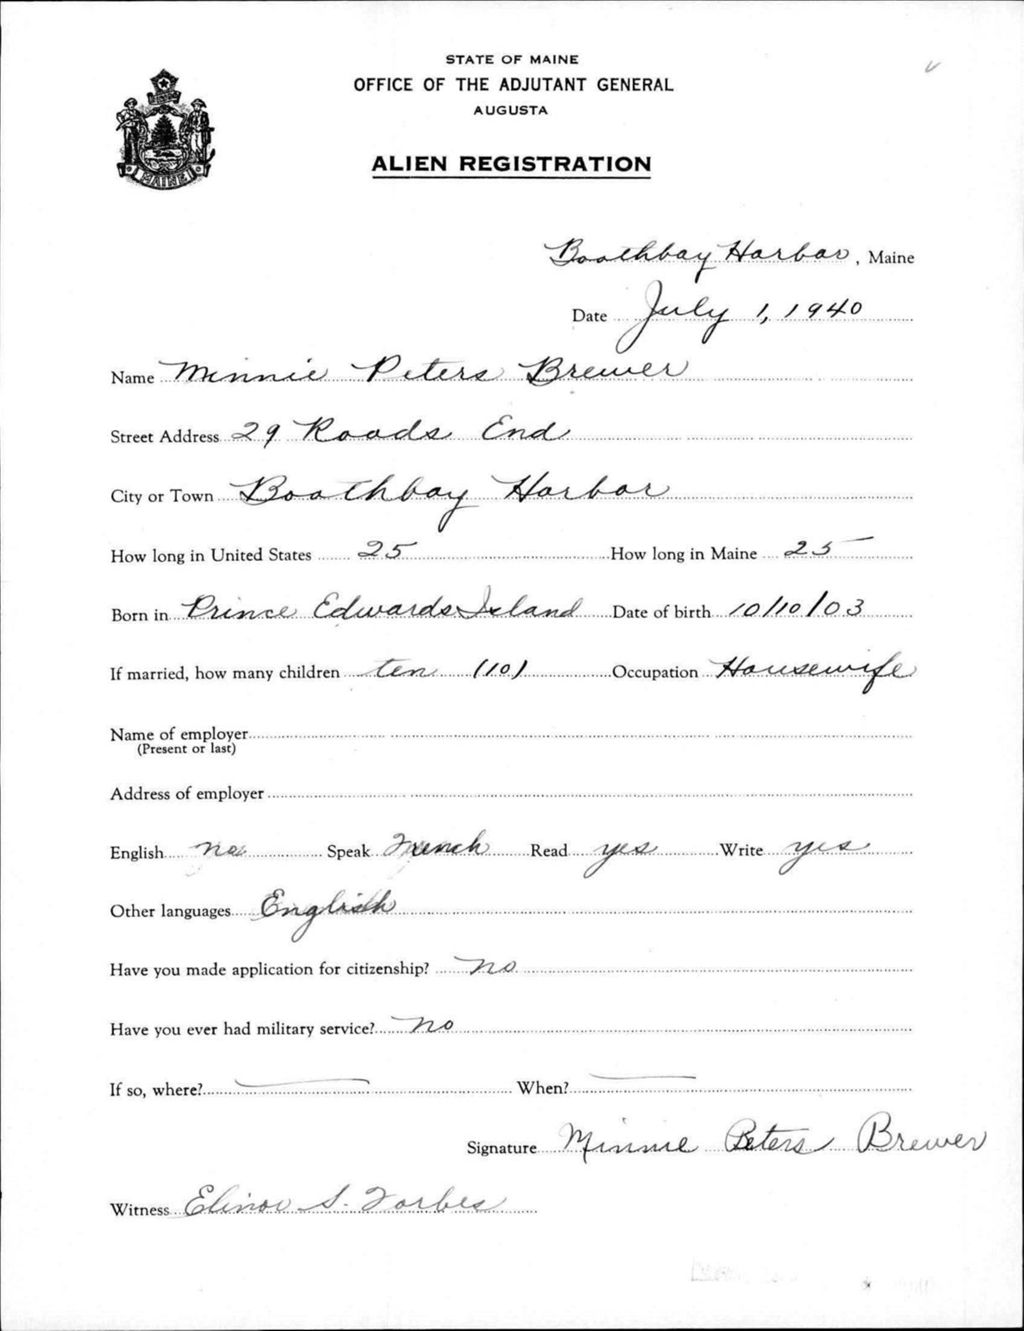 STATE OF MAINE
OFFICE OF THE ADJUTANT GENERAL
AUGUSTA
MAINE
ALIEN REGISTRATION
Boothbay Harbor, Maine
Date July 1, 1940
Name Minnie Peters Brewer
Street Address 29 Roads End
City or Town Boothbay Harbor
How long in United States 25 How long in Maine 25
Born in Prince Edwards Island Date of birth 10/10/03
If married, how many children ten (10) Occupation Housewife
Name of employer
(Present or last)
Address of employer
English no Speak French Read yes Write yes
Other languages English
Have you made application for citizenship? no
Have you ever had military service? no
If so, where? When?
Signature Minnie Peters Brewer
Witness Elinor S. Forbes